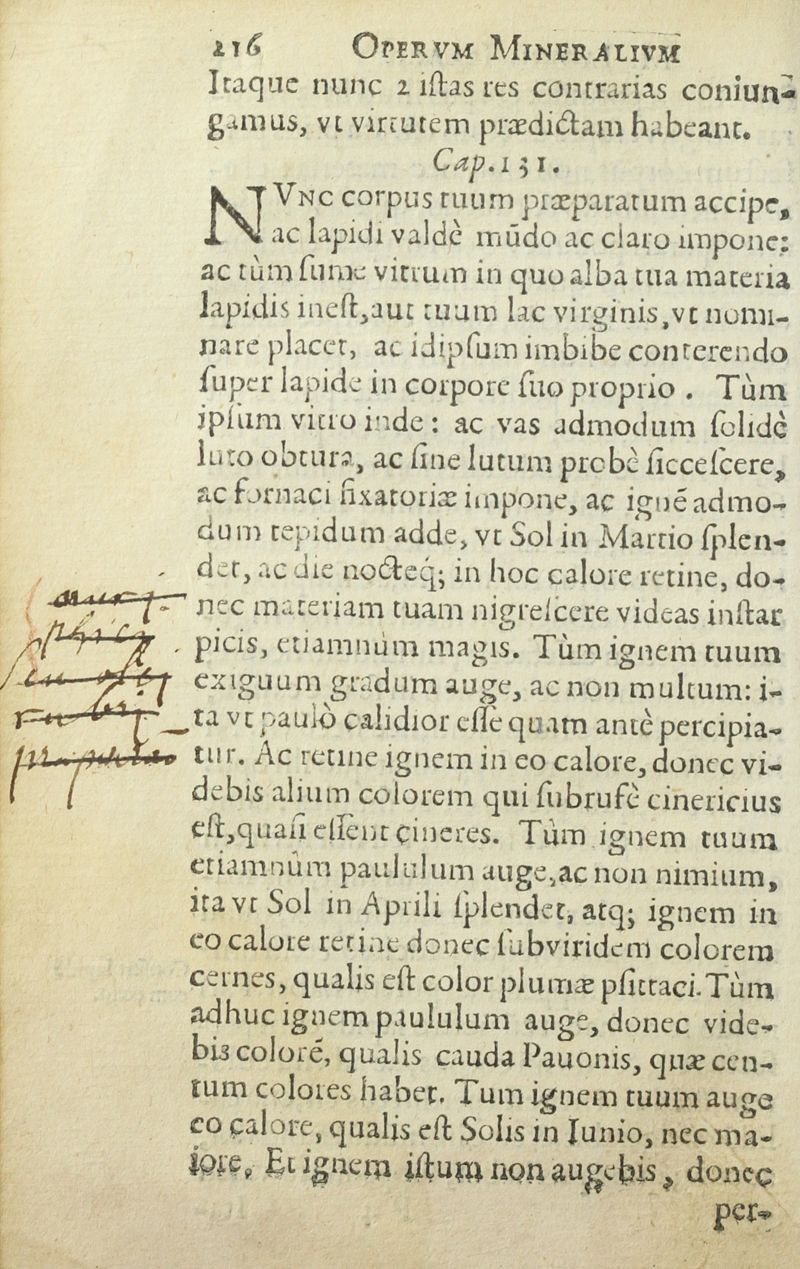 216 OPERVM MINERALIVM
Itaque nunc 2 iſtas res contrarias coniun-
gamus, vt virtutem prædictam habeant.
Cap. 131.
NVNC corpus tuum præparatum accipe,
ac lapidi valdè mūdo ac claro impone:
ac tùm ſume vitrum in quo alba tua materia
lapidis ineſt, aut tuum lac virginis, vt nomi-
nare placet, ac idipſum imbibe conterendo
ſuper lapide in corpore ſuo proprio . Tùm
ipſum vitro inde : ac vas admodum ſolidè
luto obtura, ac ſine lutum probè ſicceſcere,
ac fornaci fixatoriæ impone, ac ignē admo-
dum tepidum adde, vt Sol in Martio ſplen-
det, ac die nocteq; in hoc calore retine, do-
nec materiam tuam nigreſcere videas inſtar
picis, etiamnùm magis. Tùm ignem tuum
exiguum gradum auge, ac non multum: i-
ta vt paulò calidior eſſe quam antè percipia-
tur. Ac retine ignem in eo calore, donec vi-
debis alium colorem qui ſubrufè cinericius
eſt, quaſi eſſent cineres. Tùm ignem tuum
etiamnùm paululum auge, ac non nimium,
ita vt Sol in Aprili ſplendet, atq; ignem in
eo calore retine donec ſubviridem colorem
cernes, qualis eſt color plumæ pſittaci. Tùm
adhuc ignem paululum auge, donec vide-
bis coloré, qualis cauda Pauonis, quæ cen-
tum colores habet. Tum ignem tuum auge
eo calore, qualis eſt Solis in Iunio, nec ma-
iore, Et ignem iſtum non augebis, donec
per-